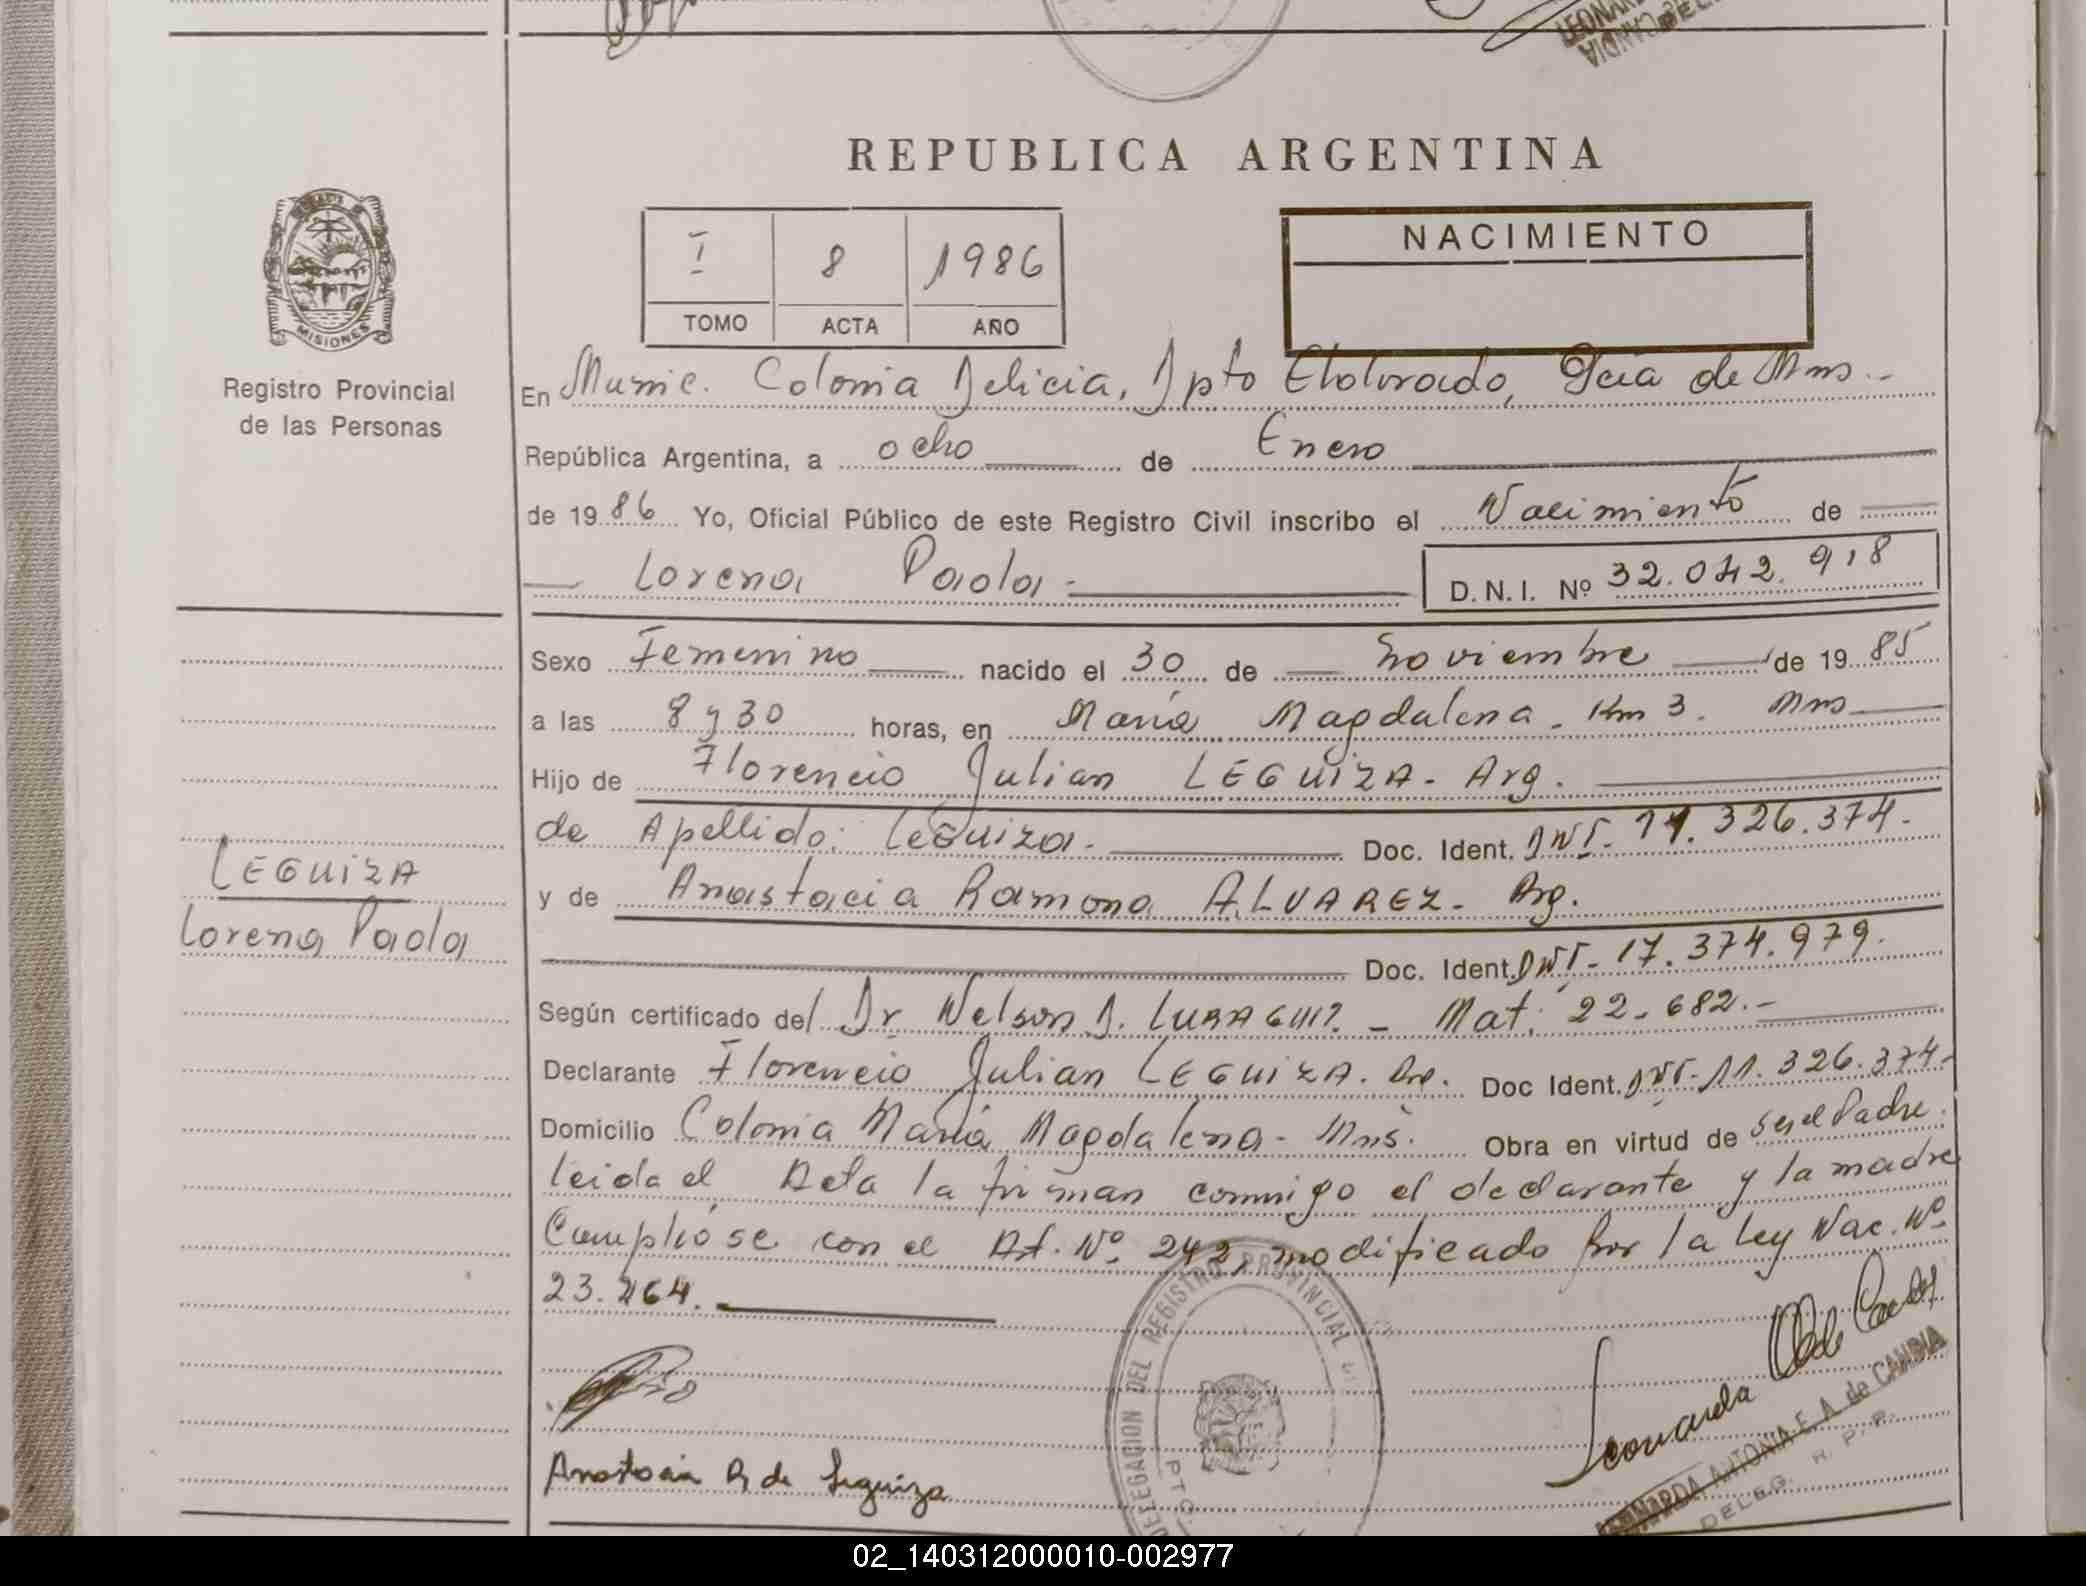 REPUBLICA ARGENTINA
I 8 1986
TOMO ACTA AÑO
NACIMIENTO
MISIONES
Registro Provincial
de las Personas
En Munic. Colonia Delicia, Dpto Eldorado, Pcia de Mns.-
República Argentina, a ocho de Enero
de 1986 Yo, Oficial Público de este Registro Civil inscribo el Nacimiento de
Lorena Paola.
D.N.I. Nº 32.042.918
Sexo Femenino nacido el 30 de Noviembre de 1985
a las 8 y 30 horas, en María Magdalena. Km 3. Mns
Hijo de Florencio Julian LEGUIZA - Arg.
de Apellido: Leguiza. Doc. Ident. DNI- 11.326.374.
y de Anastacia Ramona ALVAREZ - Arg.
Doc. Ident. DNI- 17.374.979.
LEGUIZA
Lorena Paola
Según certificado del Dr. Nelson D. - Mat. 22.682.-
Declarante Florencio Julian LEGUIZA. Arg. Doc Ident. DNI- 11.326.374-
Domicilio Colonia María Magdalena - Mns. Obra en virtud de ser el Padre.
leida el Acta la firman conmigo el declarante y la madre
Cumplióse con el Art. Nº 242, modificado por la ley Nac. Nº
23.264.
DELEGACION DEL REGISTRO PROVINCIAL
PTO.
Anastacia R de Leguiza
Leonarda
LEONARDA ANTONIA E. A. de CANDIA
DELEG. R. P. P.
02_140312000010-002977